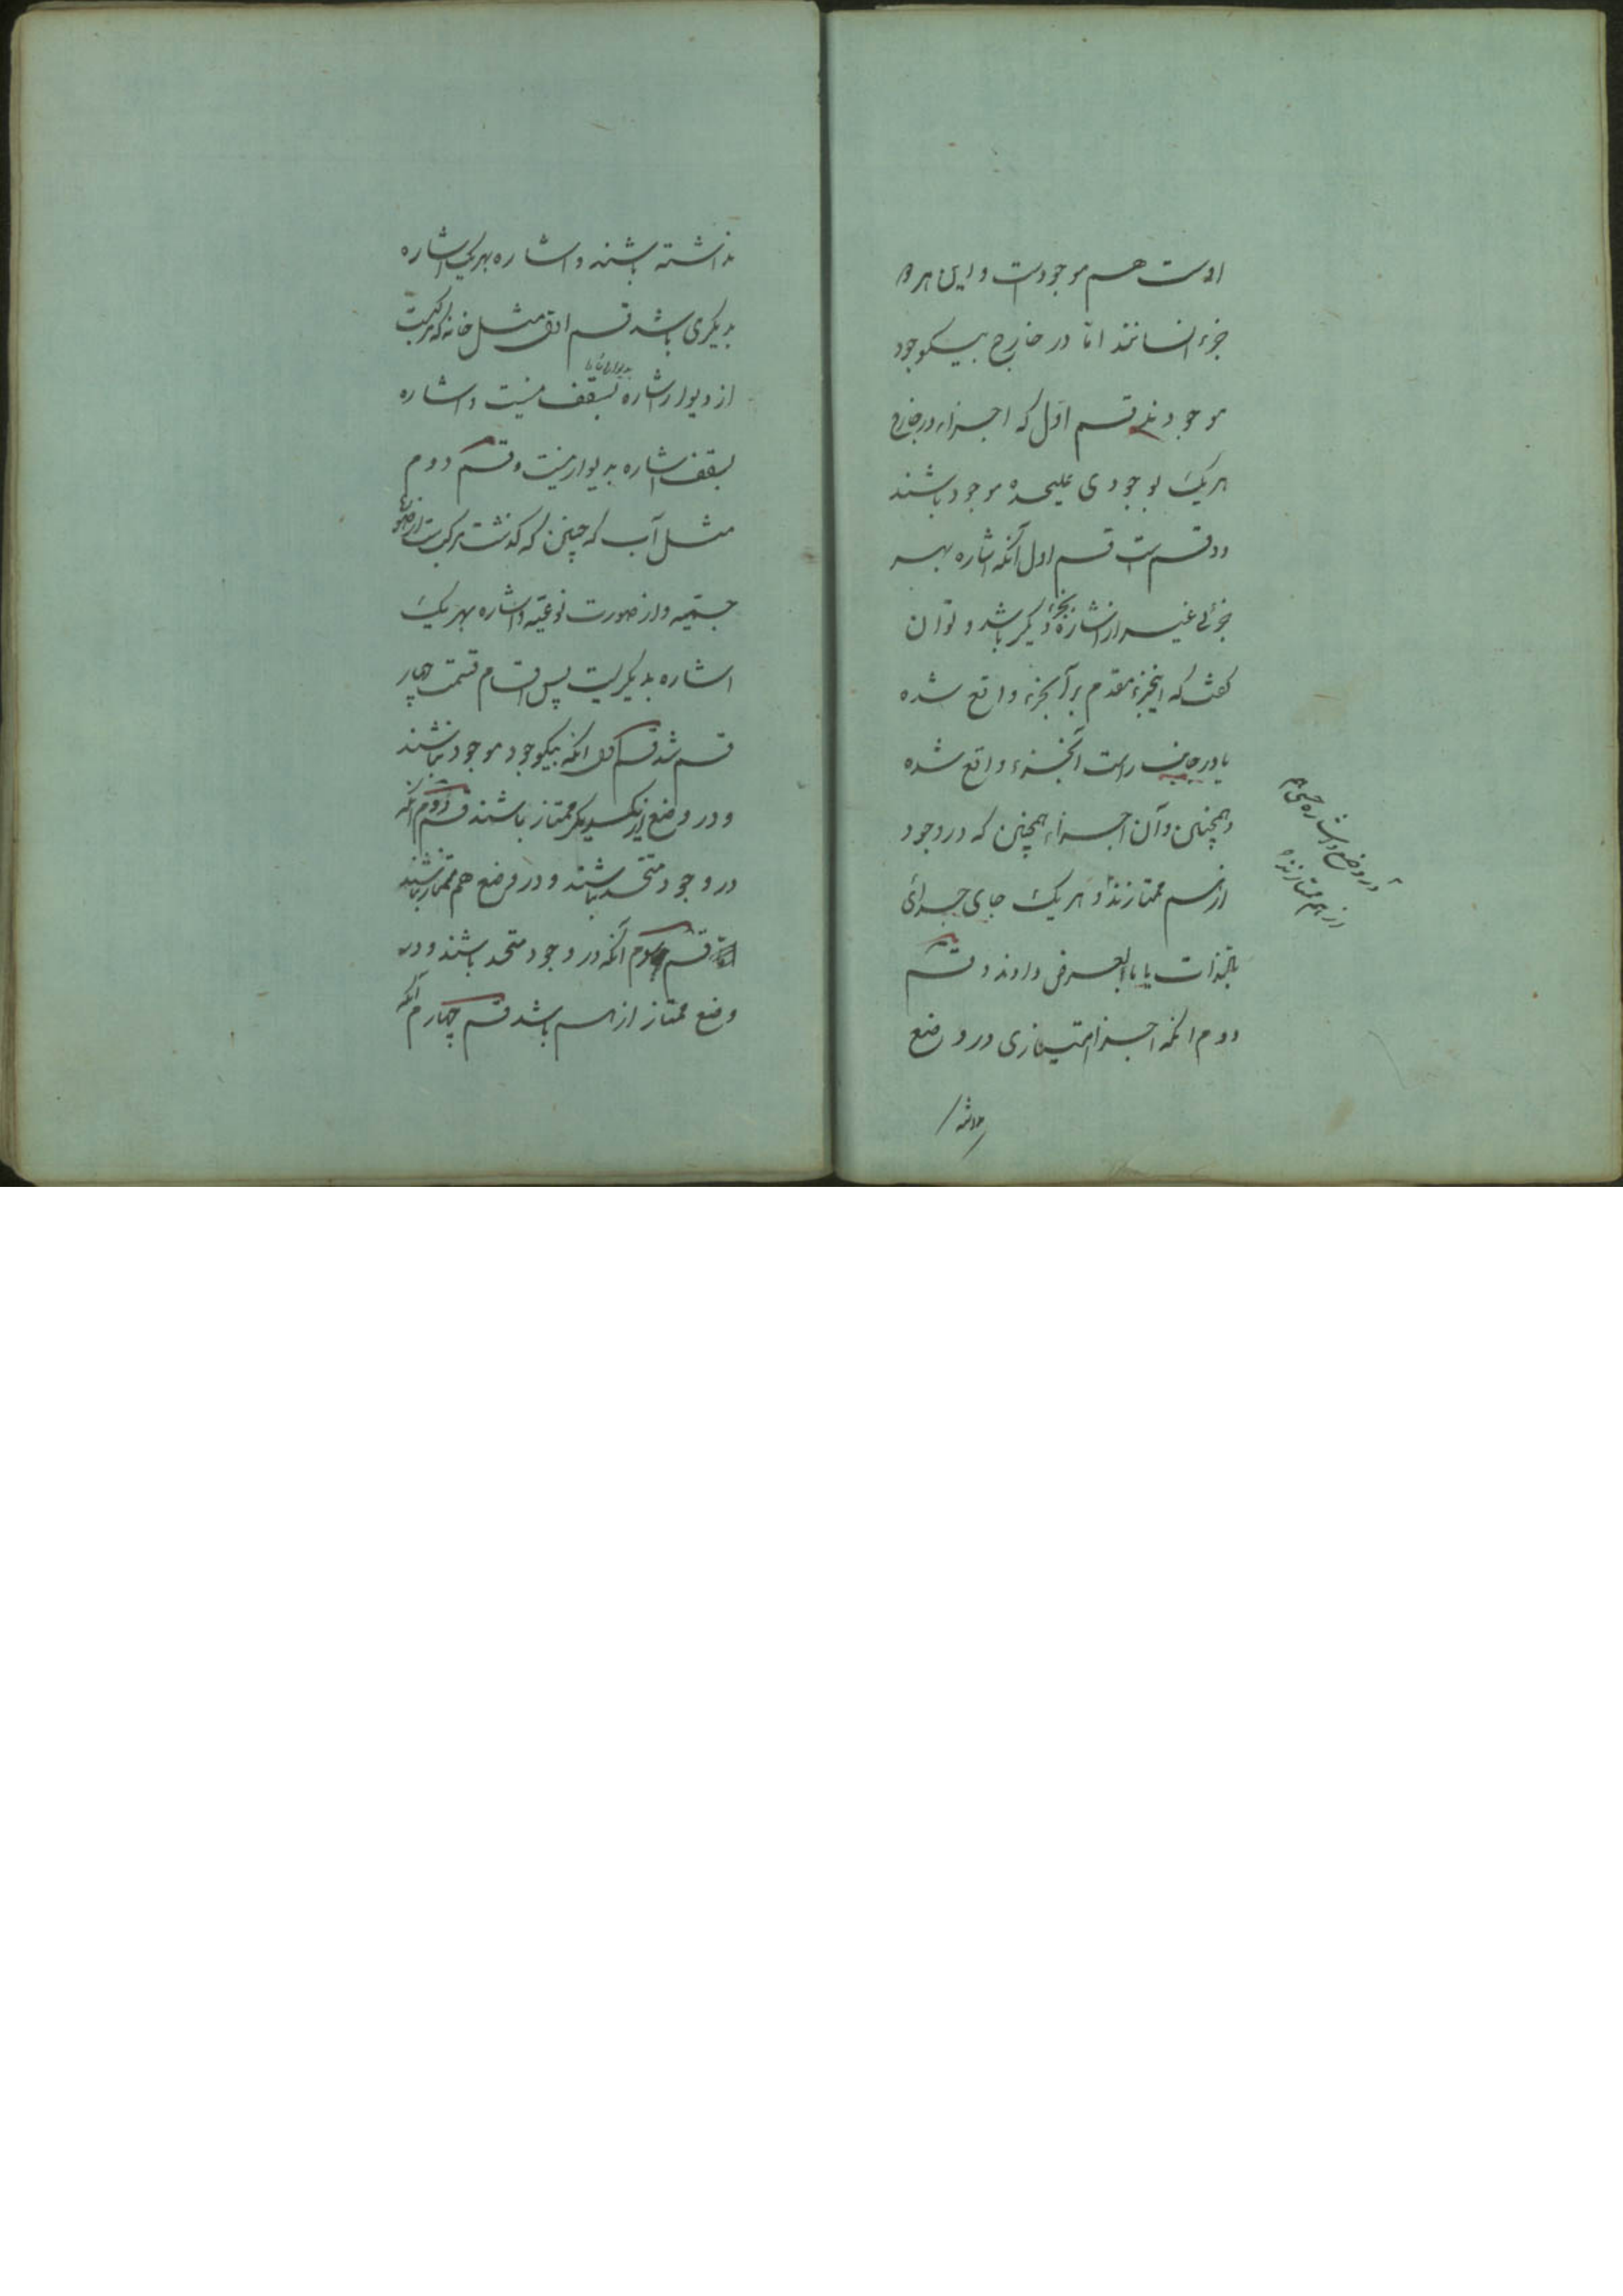 اوست هم موجودست و این هر دو
جزء انسانند امّا در خارج بیکوجود
موجودند قسم اوّل که اجزاء در خارج
هر یک بوجودی علیحده موجود باشند
دو قسم است قسم اول آنکه اشاره بهر
جزئی غیر از اشاره بجزء دیگر باشد و توان
گفت که اینجزء مقدم بر آنجزء واقع شده
یا در جانب راست آنجزء واقع شده
و همچنین و آن اجزاء همچنین که در وجود
از هم ممتازند و هر یک جای جدائی
بالذات یا بالعرض دارند و قسم
دوم آنکه اجزا امتیازی در وضع
در وضع و اشاره حسی هم
از هم ممتازند
نداشته
نداشته باشند و اشاره بهر یک اشاره
بدیگری باشد قسم اول مثل خانه که مرکبست
از دیوار اشاره بسقف نیست و اشاره
بسقف اشاره بدیوار نیست و قسم دوم
مثل آب که چنین که گذشت مرکبست از صورت
جسمیه و از صورت نوعیّه و اشاره بهر یک
اشاره بدیگریست پس اقسام قسمت چهار
قسم شد قسم اول آنکه بیکوجود موجود نباشند
و در وضع از یکدیگر ممتاز باشند قسم دوم آنکه
در وجود متحد نباشند و در وضع هم ممتاز نباشند
قسم سوم آنکه در وجود متحد باشند و در
وضع ممتاز از هم باشد قسم چهارم آنکه